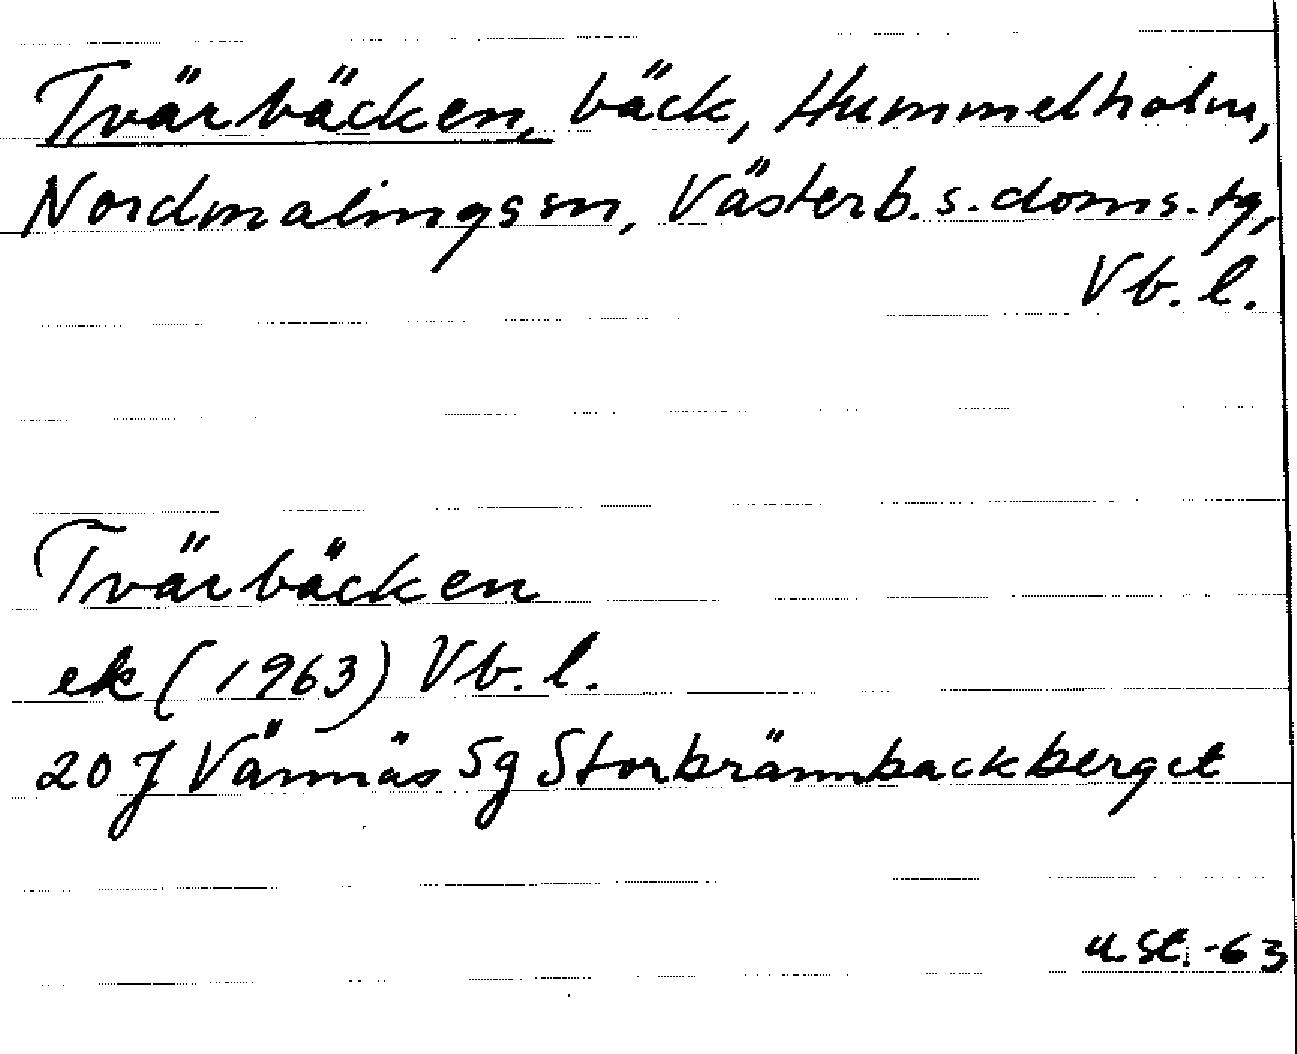 Tvärbäcken, bäck, Hummelholm,
Nordmalings sn, Västerb. s. doms. tg,
Vb. l.
Tvärbäcken
ek (1963) Vb. l.
20 J Vännäs 5g Storbrännbackberget
u. St. -63